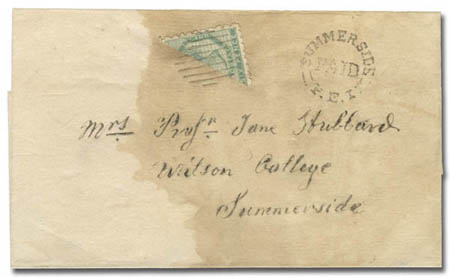 SUMMERSIDE
PAID
P.E.I.
Mrs Profr Jane Hubbard
Wilson College
Summerside